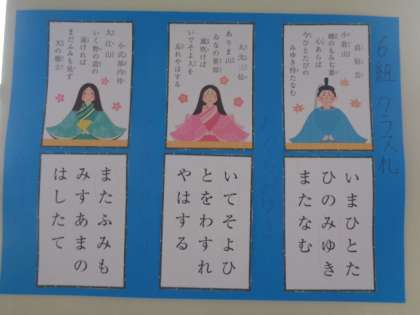 6組 クラス札
貞信公
小倉山
峰のもみぢ葉
心あらば
今ひとたびの
みゆき待たなむ
いまひとた
ひのみゆき
またなむ
大弐三位
ありま山
ゐなの笹原
風吹けば
いでそよ人を
忘れやはする
いてそよひ
とをわすれ
やはする
小式部内侍
大江山
いく野の道の
遠ければ
まだふみも見ず
天の橋立
またふみも
みすあまの
はしたて